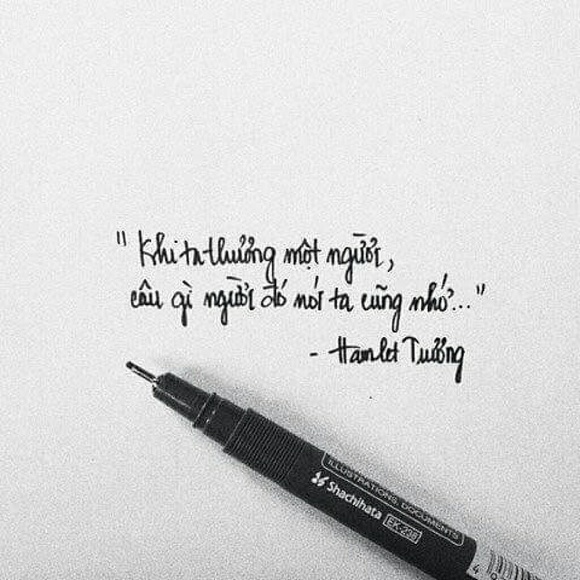 "Khi ta thương một người,
câu gì người đó nói ta cũng nhớ..."
- Hamlet Trương
ILLUSTRATIONS, DOCUMENTS
Shachihata EK-238
4